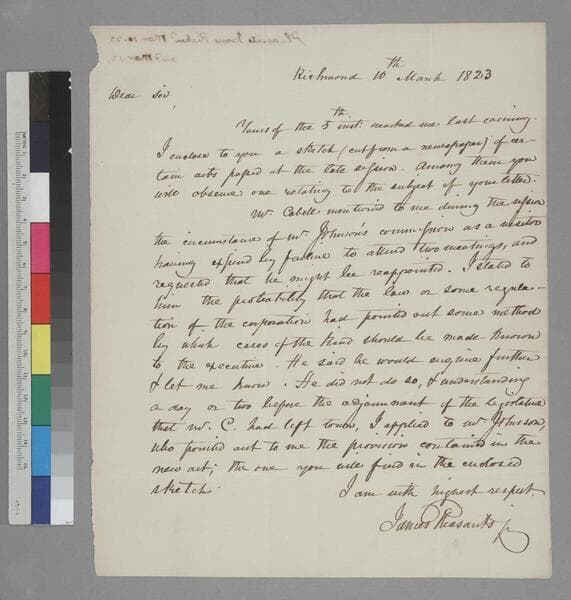 Richmond 10th March 1823
Dear Sir,
Yours of the 5th inst. reached me last evening.
I enclose to you a sketch (cut from a newspaper) of cer-
tain acts passed at the late session. Among them you
will observe one relating to the subject of your letter.
Mr. Cabell mentioned to me during the session
the circumstance of Mr. Johnson's commission as a visitor
having expired by failure to attend two meetings, and
requested that he might be reappointed. I stated to
him the probability that the law or some regula-
tion of the corporation had pointed out some method
by which cases of the kind should be made known
to the executive. He said he would enquire further
& let me know. He did not do so, & understanding
a day or two before the adjournment of the legislature
that Mr. C. had left town, I applied to Mr. Johnson,
who pointed out to me the provision contained in the
new act; the one you will find in the enclosed
sketch.
I am with highest respect
James Pleasants jr